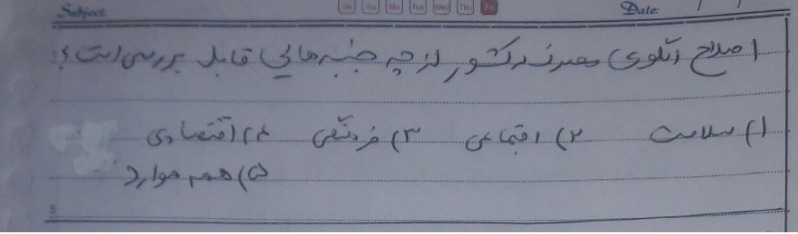 Subject: Sa Su Mo Tue Wed Thu Fri Date: / /
اصلاح الگوی مصرف در کشور از چه جنبه‌هایی قابل بررسی است؟
۱) سلامت ۲) اجتماعی ۳) فرهنگی ۴) اقتصادی
۵) همه موارد
5